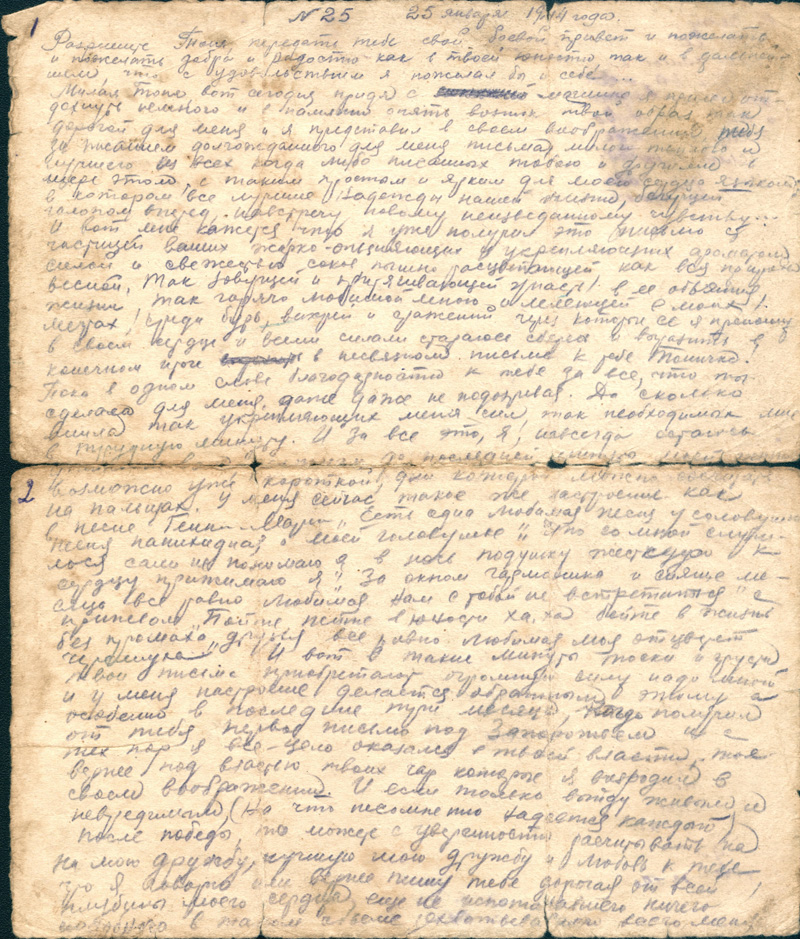 1 N 25 25 января 1944 года.
Разрешите Тоня, передать тебе свой боевой привет и пожелать
и пожелать добра и радости как в твоей юности так и в дальней-
шем, что с удовольствием я пожелал бы и себе...
Милая Тоня вот сегодня придя с машины я прилег от-
дохнуть немного и в памяти опять возник твой образ, так
дорогой для меня и я представил в своем воображении, тебя
за писанием долгожданного для меня письма, милого теплого и
лучшего из всех когда либо писанных тобою и
с таким простым и ярким для моего сердца языком
в котором все лучшие надежды нашей жизни,
галопом вперед, навстречу новому неизведанному чувству...
И вот мне кажется что я уже получил это письмо с
частицей ваших и укрепляющих ароматом
силой и свежестью пышно расцветающей как вся природа
весной, так зовущей и притягивающей упасть! в ее объятия
жизни так горячо любимой мною и в моих
мечтах! среди бурь, вихрей и сражений через которые её я
в своем сердце и всеми силами стараюсь сберечь и выразить в
конечном итоге в несвязном письме к тебе Тоничка.
Пока в одном слове благодарности к тебе за все, что ты
сделала для меня, даже даже не подозревая. До сколько
влила так укрепляющих меня сил так необходимых мне
в трудную минуту. И за все это, я! навсегда останусь
до последней
2 возможно уже короткой, дни которой можно
на пальцах. У меня сейчас такое же настроение как
в песне „Есть одна любимая песня у соловушки
песня панихидная о моей головушке" „Что со мной случи-
лося сам не понимаю я в ночь подушку жесткую к
сердцу прижимаю я" За окном гармоника и сияние ме-
сяца все равно любимая нам с тобой не встретиться" с
припевом „Пойте пейте в юности ха, ха бейте в жизнь
без промаха друзья все равно любимая моя отцветет
черемуха" И вот в такие минуты тоски и грусти
твои письма приобретают огромную силу надо мной
и у меня настроение делается обратным этому а
особенно в последние три месяца, когда получил
от тебя первое письмо под Запорожьем и с
тех пор я все-цело оказался в твоей власти, Тоня
вернее под властью твоих чар которые я возродил в
своем воображении. И если только выйду живым и
невредимым (На что несомненно надеется каждый)
после победы, ты можешь с уверенностью расчитывать на
на мою дружбу, лучшую мою дружбу и любовь к тебе
что я говорю или вернее пишу тебе дорогая от всей
глубины моего сердца, еще не испытавшего ничего
в таком всего меня